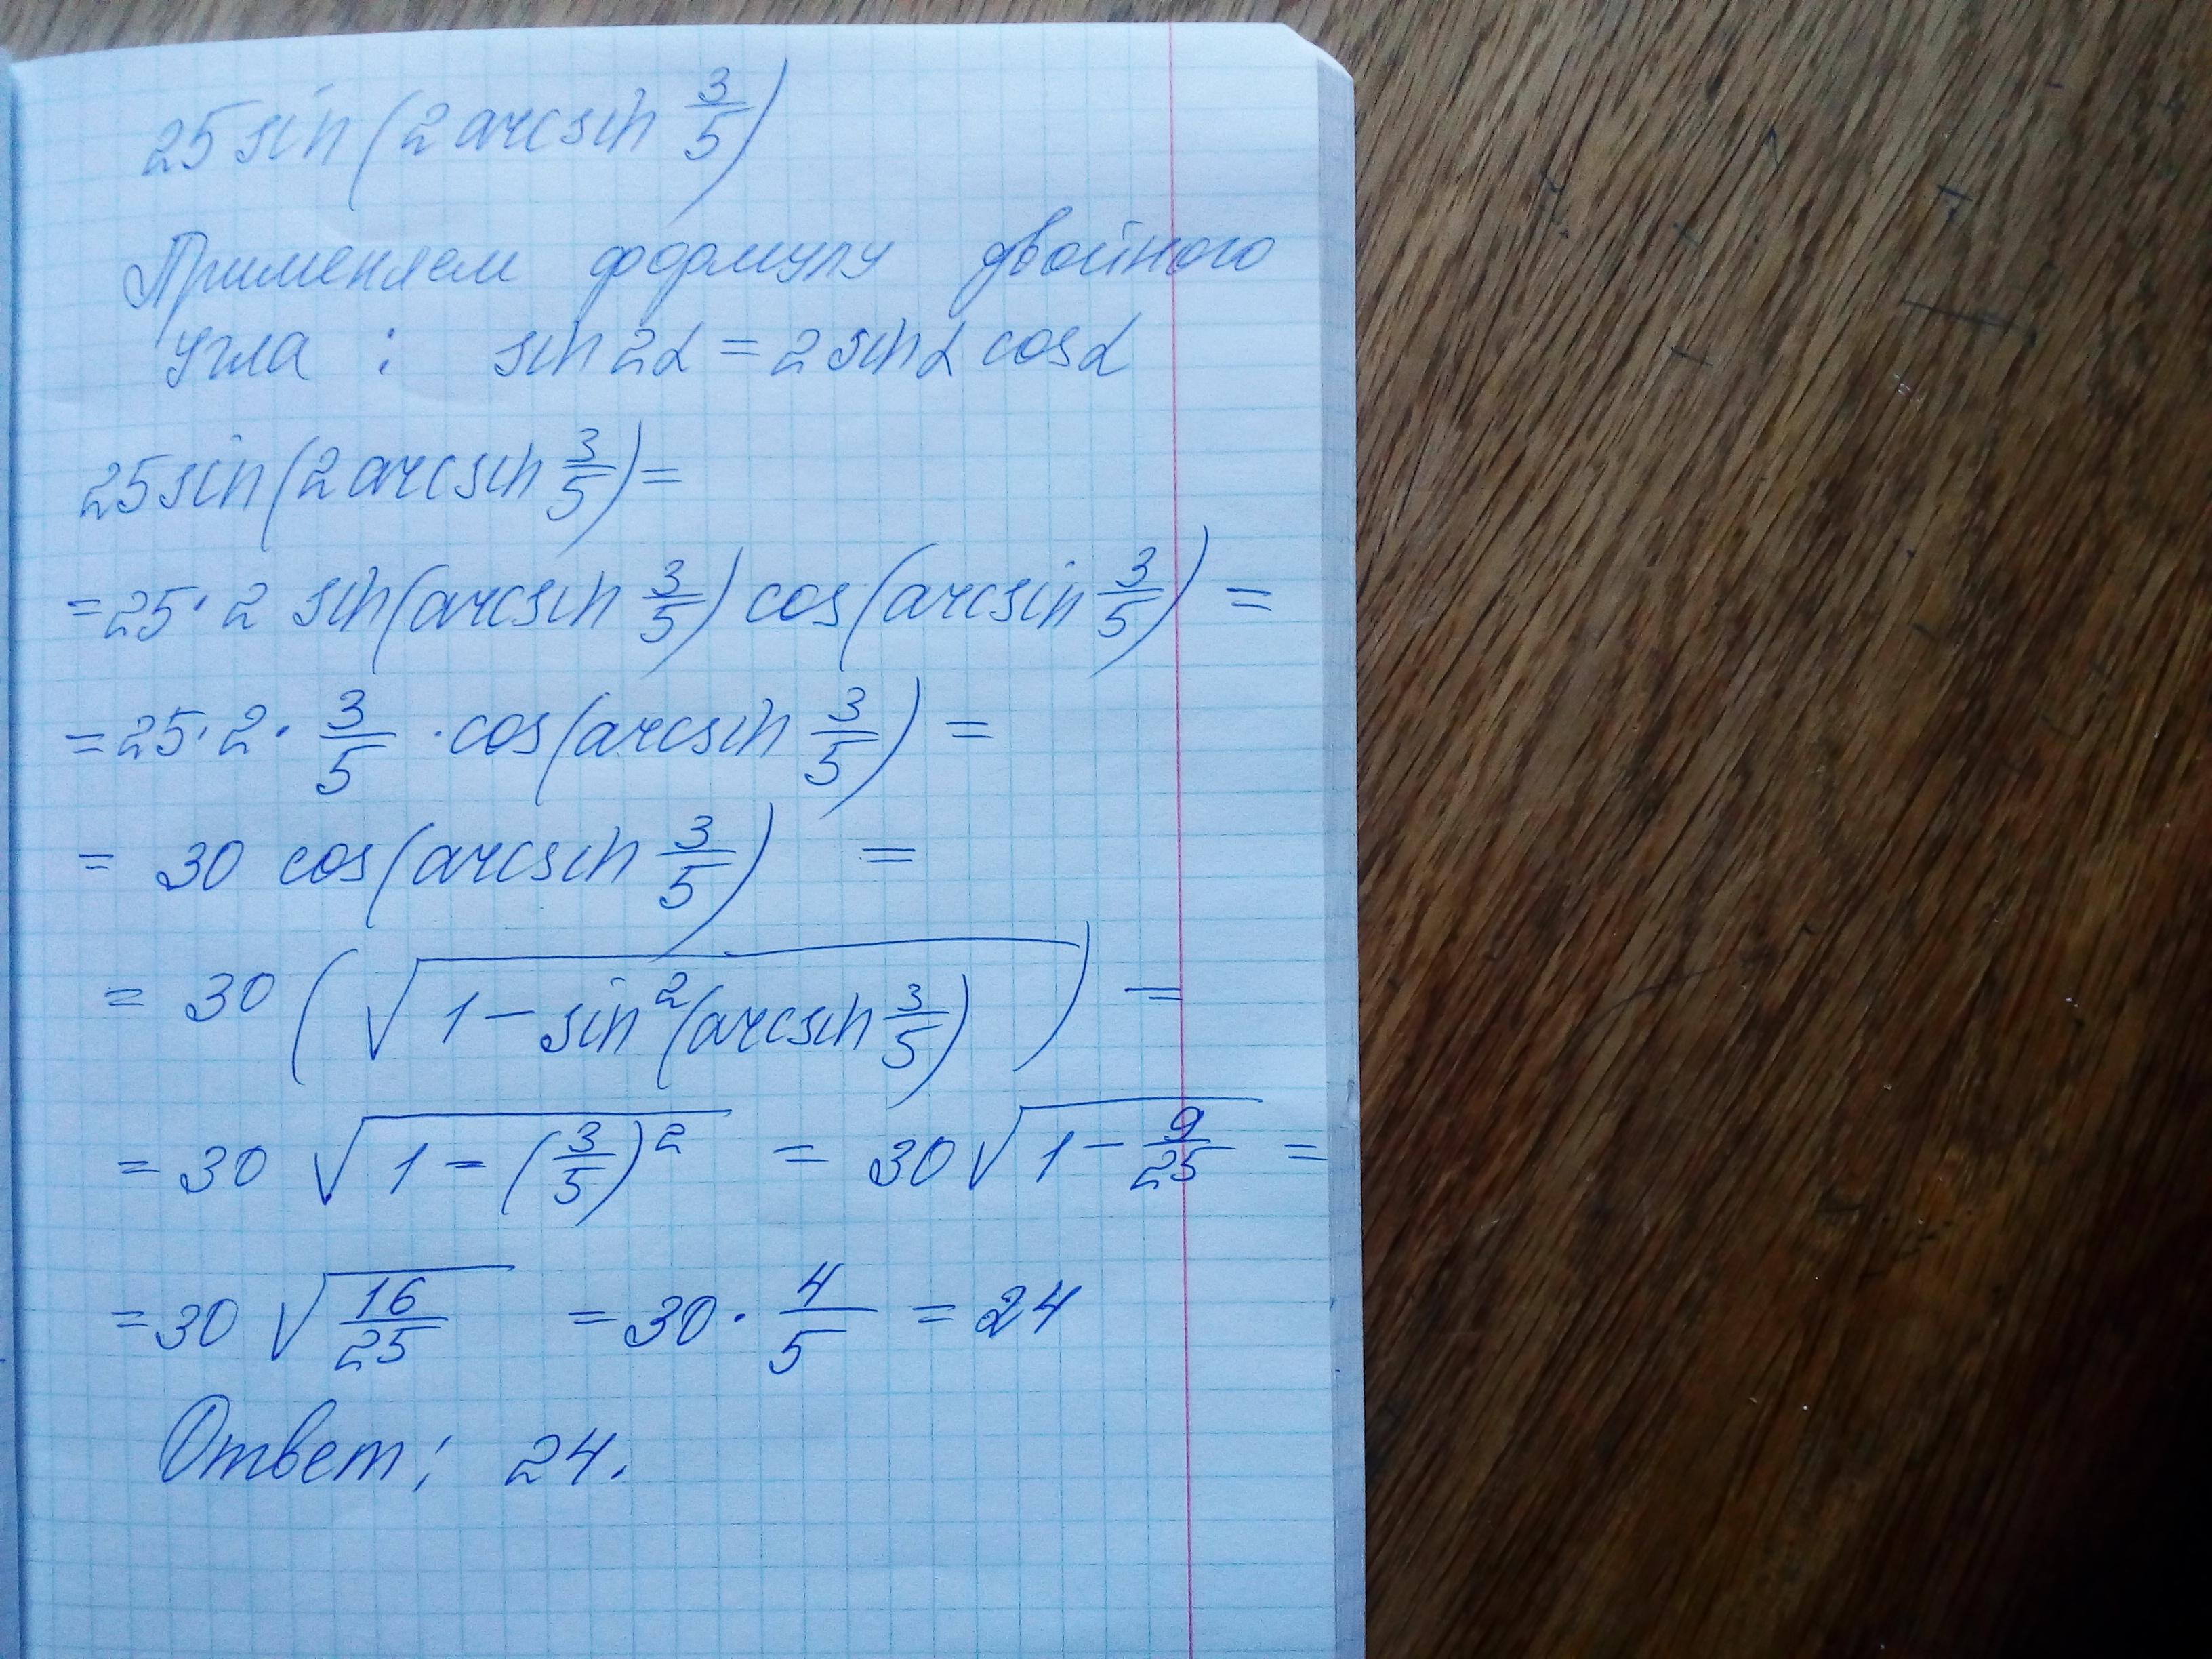 25 sin (2 arcsin 3/5)
Применяем формулу двойного
угла : sin 2α = 2 sin α cos α
25 sin (2 arcsin 3/5) =
= 25 · 2 sin (arcsin 3/5) cos (arcsin 3/5) =
= 25 · 2 · 3/5 · cos (arcsin 3/5) =
= 30 cos (arcsin 3/5) =
= 30 (√(1 - sin²(arcsin 3/5))) =
= 30 √(1 - (3/5)²) = 30 √(1 - 9/25) =
= 30 √(16/25) = 30 · 4/5 = 24
Ответ: 24.